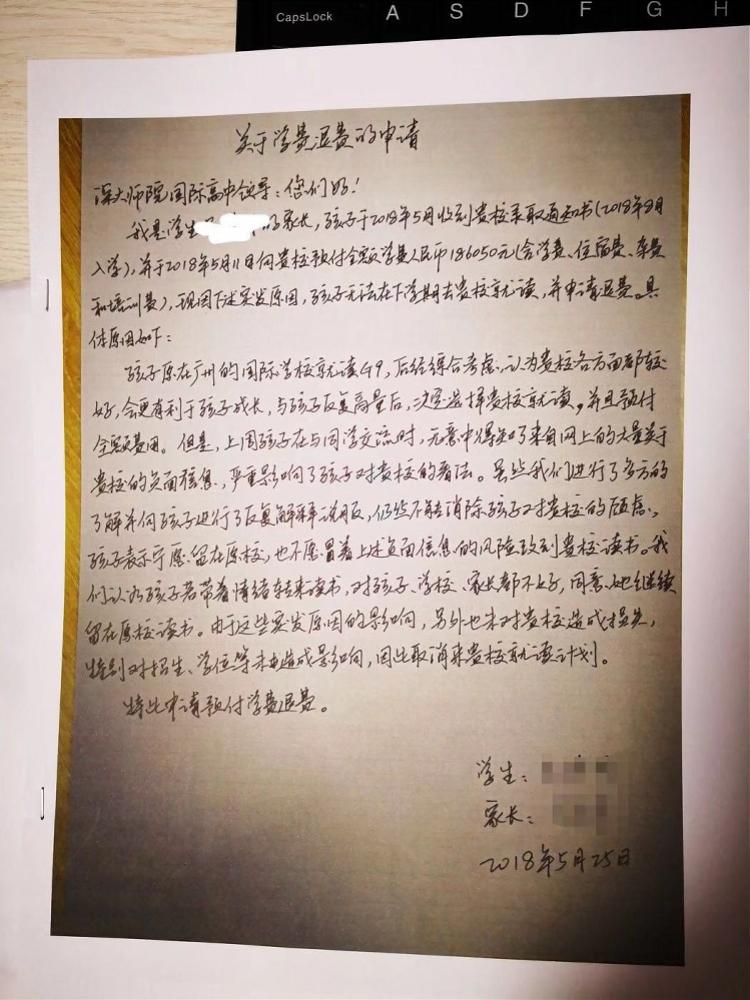 CapsLock A S D F G H
关于学费退费的申请
深大师院国际高中领导：您们好！
我是学生 的家长，孩子于2018年5月收到贵校录取通知书（2018年8月
入学），并于2018年5月11日向贵校预付全额学费人民币186050元（含学费、住宿费、杂费
和培训费），现因下述突发原因，孩子无法在下学期去贵校就读，并申请退费。具
体原因如下：
孩子原在广州的国际学校就读G9，后经综合考虑，认为贵校各方面都较
好，会更有利于孩子成长，与孩子反复商量后，决定选择贵校就读，并且预付
全额费用。但是，上周孩子在与同学交流时，无意中得知了来自网上的大量关于
贵校的负面信息，严重影响了孩子对贵校的看法。虽然我们进行了多方的
了解并向孩子进行了反复解释说服，仍然不能消除孩子对贵校的顾虑，
孩子表示宁愿留在原校，也不愿冒着上述负面信息的风险到贵校读书。我
们认为孩子若带着情绪转来读书，对孩子、学校、家长都不好，同意她继续
留在原校读书。由于这些突发原因的影响，另外也未对贵校造成损失，
特别对招生、学位等未造成影响，因此取消来贵校就读计划。
特此申请预付学费退费。
学生：
家长：
2018年5月25日